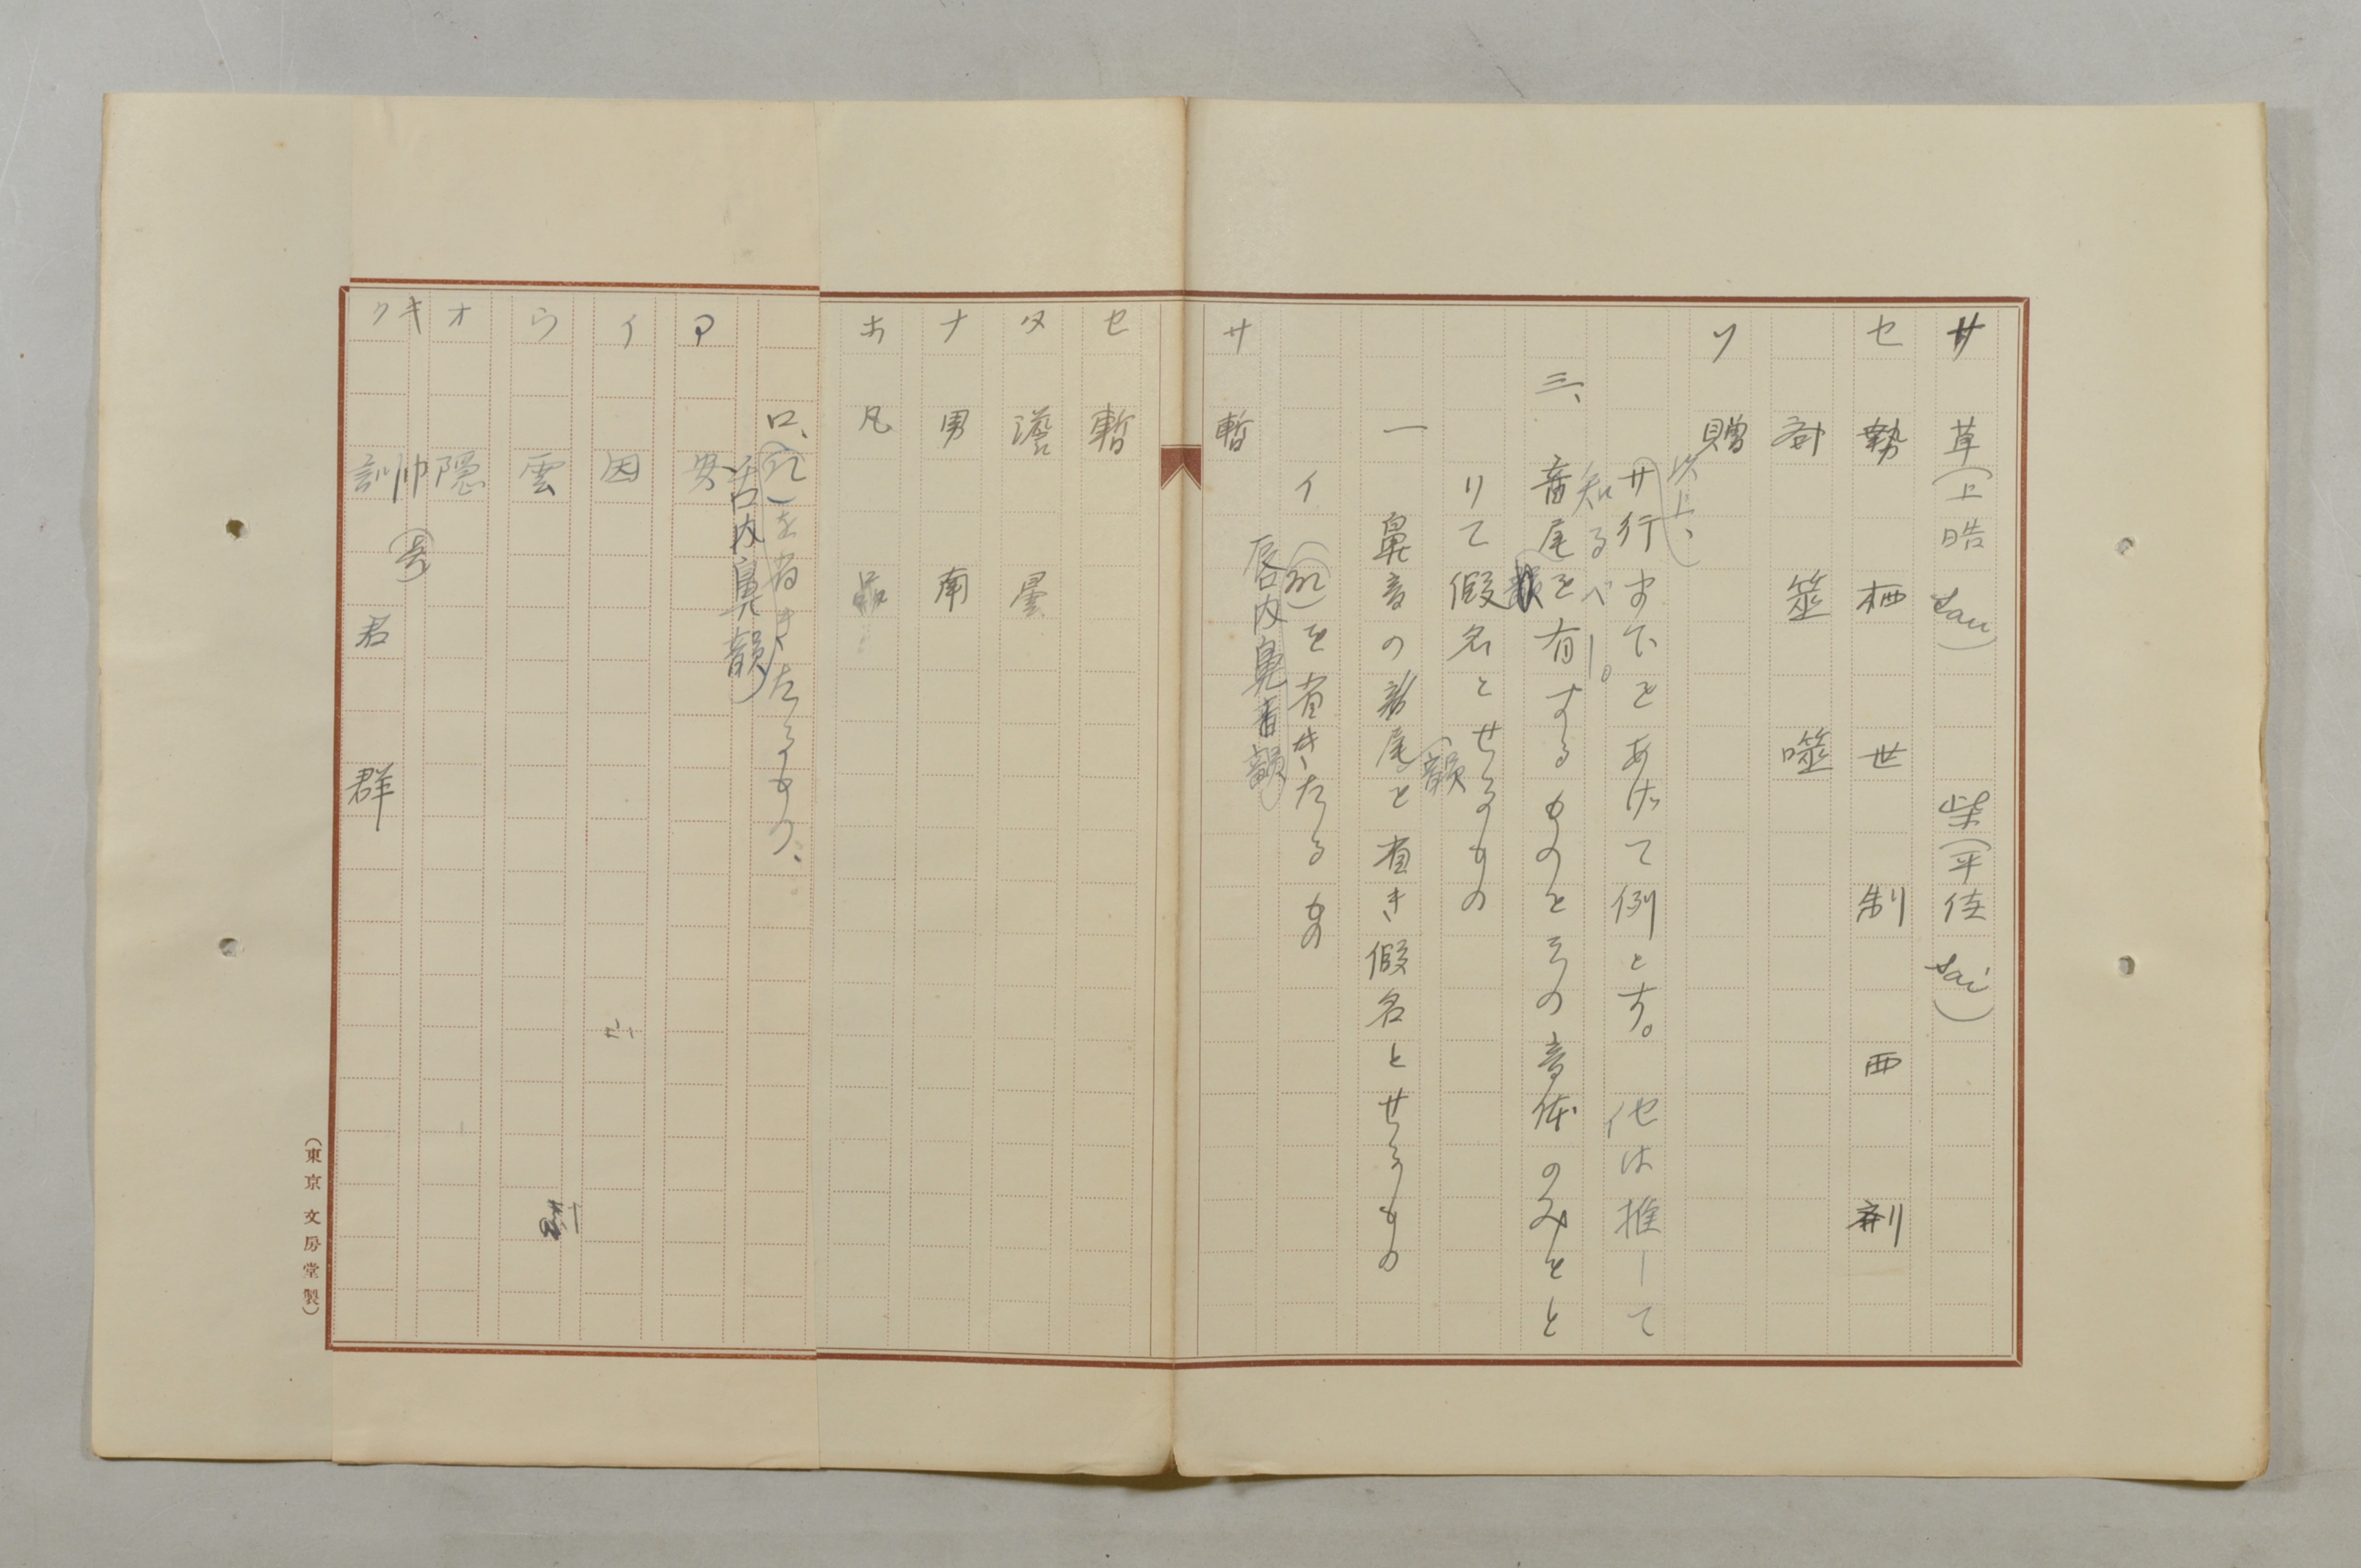 サ 草(上皓 sau) 柴(平佳 sai)
セ 勢 栖 世 制 西 劑
斎 筮 噬
ソ 贈
以上、
サ行まor下をあげて例とす。他は推して
知るべし。
三、音尾を有するものをその音体のみをと
韻
りて假名とせるもの
韻
一 鼻音の韻尾を省き假名とせるもの
イ (m)を省きたるもの
唇内鼻音韻
サ 暫
セ 暫
タ 澹 曇
ナ 男 南
ホ 凡 品
ロ、(n)を省きたるもの、
舌内鼻韻
ア 安
イ 因
ウ 雲
オ 隠
キ
ク 訓 君 群
(東京 文房堂製)